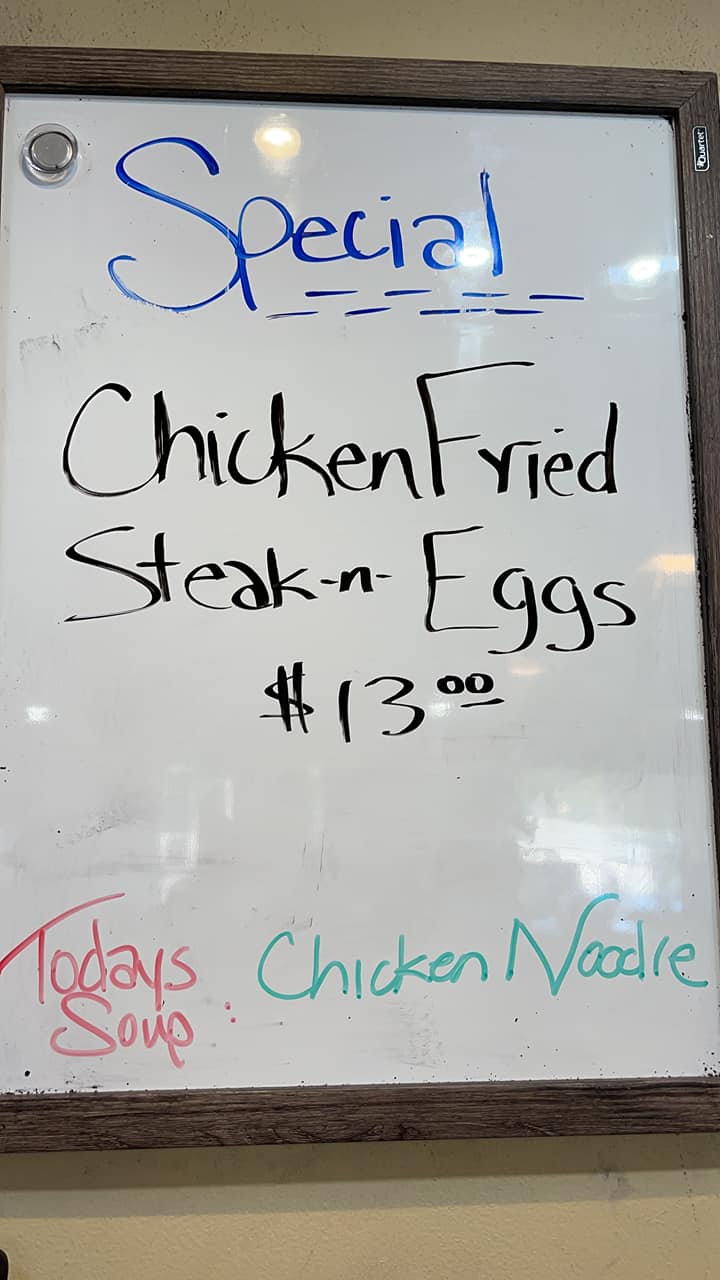 Quartet
Special
Chicken Fried
Steak-n-Eggs
$13.00
Todays
Soup: Chicken Noodle